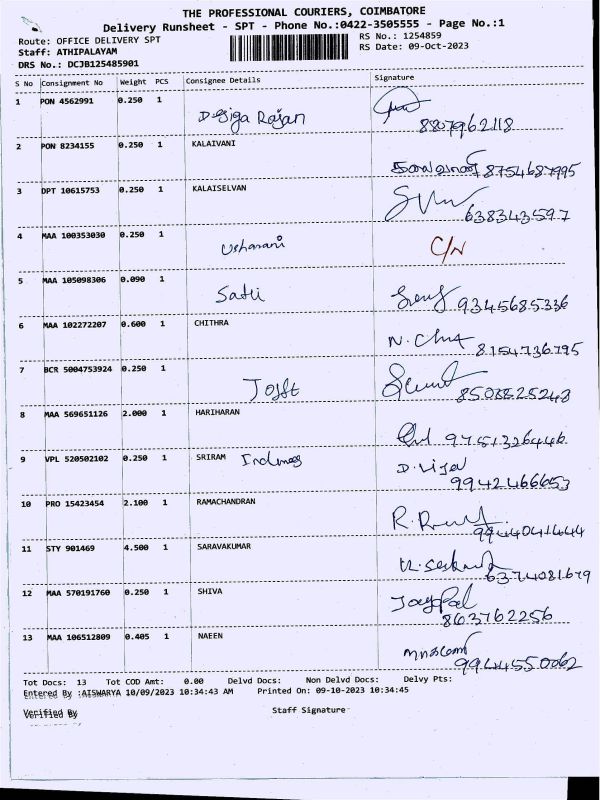 THE PROFESSIONAL COURIERS, COIMBATORE
Delivery Runsheet - SPT - Phone No.:0422-3505555 - Page No.:1
Route: OFFICE DELIVERY SPT RS No.: 1254859
Staff: ATHIPALAYAM RS Date: 09-Oct-2023
DRS No.: DCJB125485901
S No Consignment No Weight PCS Consignee Details Signature
1 PON 4562991 0.250 1
8807962118
2 PON 8234155 0.250 1 KALAIVANI
8754687995
3 DPT 10615753 0.250 1 KALAISELVAN
638343597
4 MAA 100353030 0.250 1 Usharani C/N
5 MAA 105098306 0.090 1
9345685336
6 MAA 102272207 0.600 1 CHITHRA
8154736795
7 BCR 5004753924 0.250 1
8508825248
8 MAA 569651126 2.000 1 HARIHARAN
9751326446
9 VPL 520502102 0.250 1 SRIRAM
9942466653
10 PRO 15423454 2.100 1 RAMACHANDRAN
9944041444
11 STY 901469 4.500 1 SARAVAKUMAR
6374081679
12 MAA 570191760 0.250 1 SHIVA Jaypal
863762256
13 MAA 106512809 0.405 1 NAEEN
9944550062
Tot Docs: 13 Tot COD Amt: 0.00 Delvd Docs: Non Delvd Docs: Delvy Pts:
Entered By :AISWARYA 10/09/2023 10:34:43 AM Printed On: 09-10-2023 10:34:45
Verified By Staff Signature